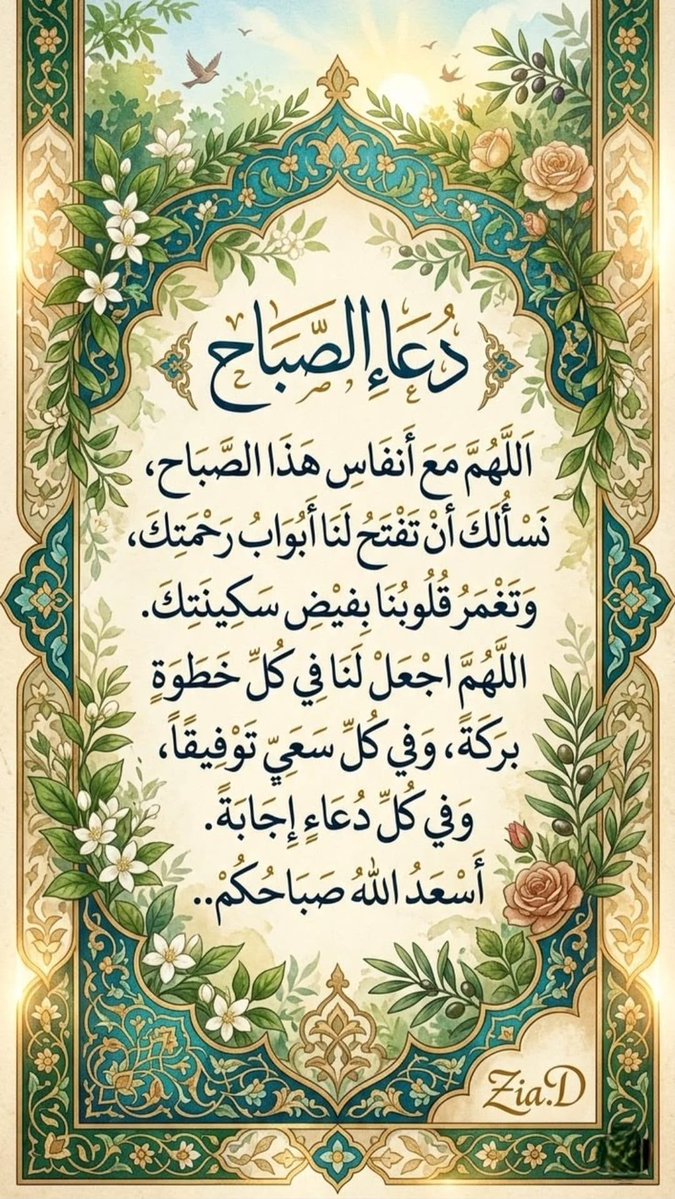 دُعَاءِ الصَّبَاح
اَللَّهُمَّ مَعَ أَنفَاسِ هَذَا الصَّبَاح،
نَسْأَلُكَ أنْ تَفْتَحُ لَنَا أَبُوَابُ رَحْمَتِكَ،
وَتَغْمَرُ قُلُوبُنَا بِفيْضِ سَكِينَتِكَ.
اللَّهُمَّ اجْعَلْ لَنَا فِي كُلِّ خَطَوَةٍ
برَكَةً، وَفي كُلِّ سَعَيٍّ تَوْفِيقًاً،
وَفي كُلِّ دُعَاءٍ إِجَابَةً.
أَسْعَدُ اللهُ صَبَاحُكُمْ..
Zia.D